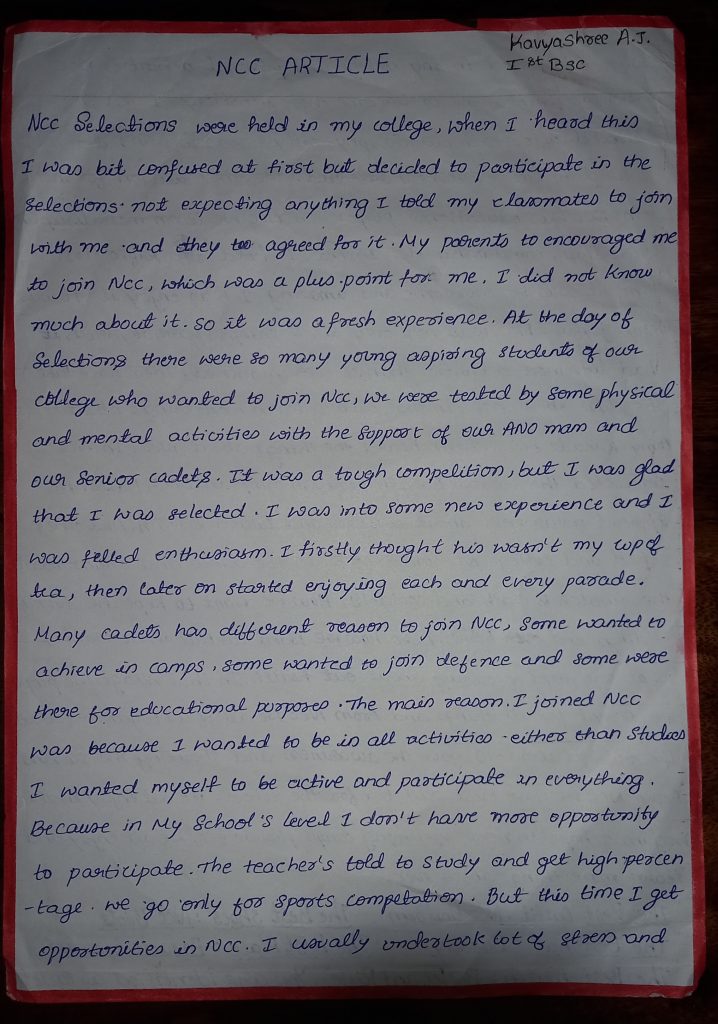 Kavyashree A.J.
NCC ARTICLE
Ist BSC
Ncc Selections were held in my college, when I heard this
I was bit confused at first but decided to participate in the
Selections. not expecting anything I told my classmates to join
with me and they too agreed for it. My parents to encouraged me
to join Ncc, which was a plus point for me. I did not know
much about it. so it was a fresh experience. At the day of
Selections there were so many young aspiring students of our
college who wanted to join Ncc, we were tested by some physical
and mental activities with the support of our ANO mam and
our Senior cadets. It was a tough competition, but I was glad
that I was selected. I was into some new experience and I
was felled enthusiasm. I firstly thought his wasn't my cup of
tea, then later on started enjoying each and every parade.
Many cadets has different reason to join Ncc, some wanted to
achieve in camps, some wanted to join defence and some were
there for educational purposes. The main reason. I joined Ncc
was because I wanted to be in all activities. either than Studies
I wanted myself to be active and participate in everything.
Because in My School's level I don't have more opportunity
to participate. The teacher's told to study and get high percen
-tage. we go only for sports competation. But this time I get
opportunities in Ncc. I usually undertook lot of stress and